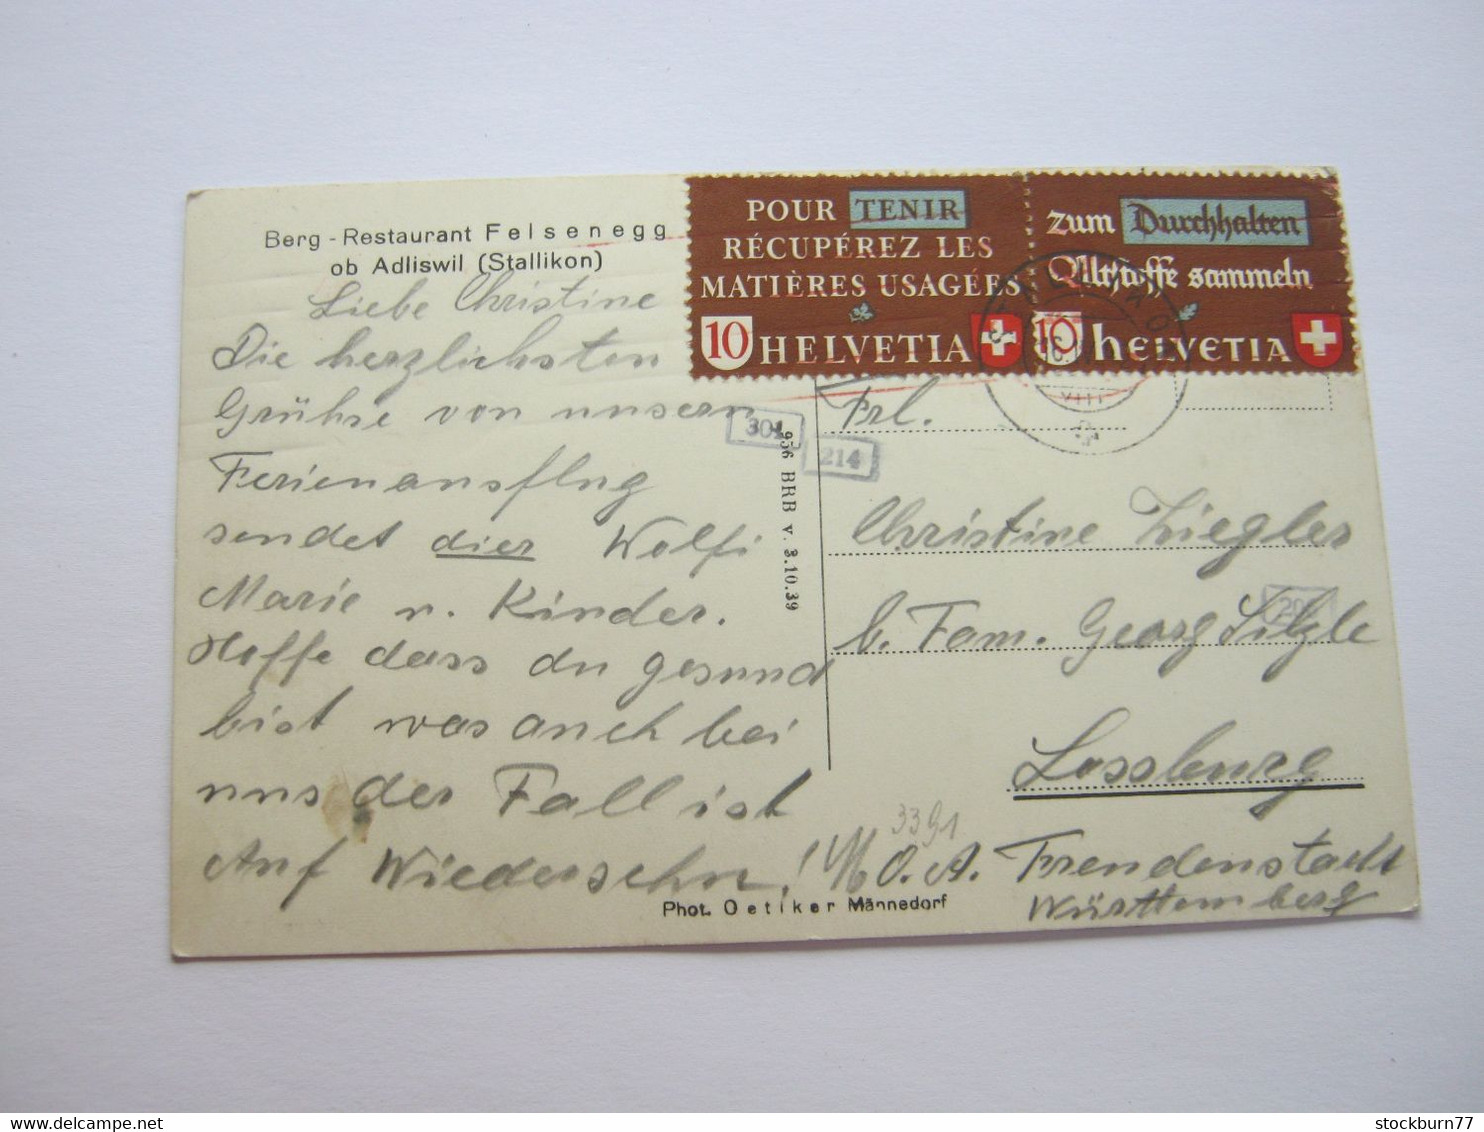 Berg - Restaurant Felsenegg
ob Adliswil (Stallikon)
Liebe Christine
Die herzlichsten
Grühse von unsern
Ferienausflug
sendet dier Wolfi
Marie u. Kinder.
Hoffe dass du gesund
bist was auch bei
uns der Fall ist
Auf Wiedersehn!
Phot. Oetiker Männedorf
956 BRB v. 3.10.39
POUR TENIR
RÉCUPÉREZ LES
MATIÈRES USAGÉES
10 HELVETIA
zum Durchhalten
Altstoffe sammeln
10 HELVETIA
VIII
301
214
Frl.
Christine Ziegler
b. Fam. Georg Silzle
Lossburg
3391
O. A. Freudenstadt
Württemberg
www.delcampe.net
stockburn77